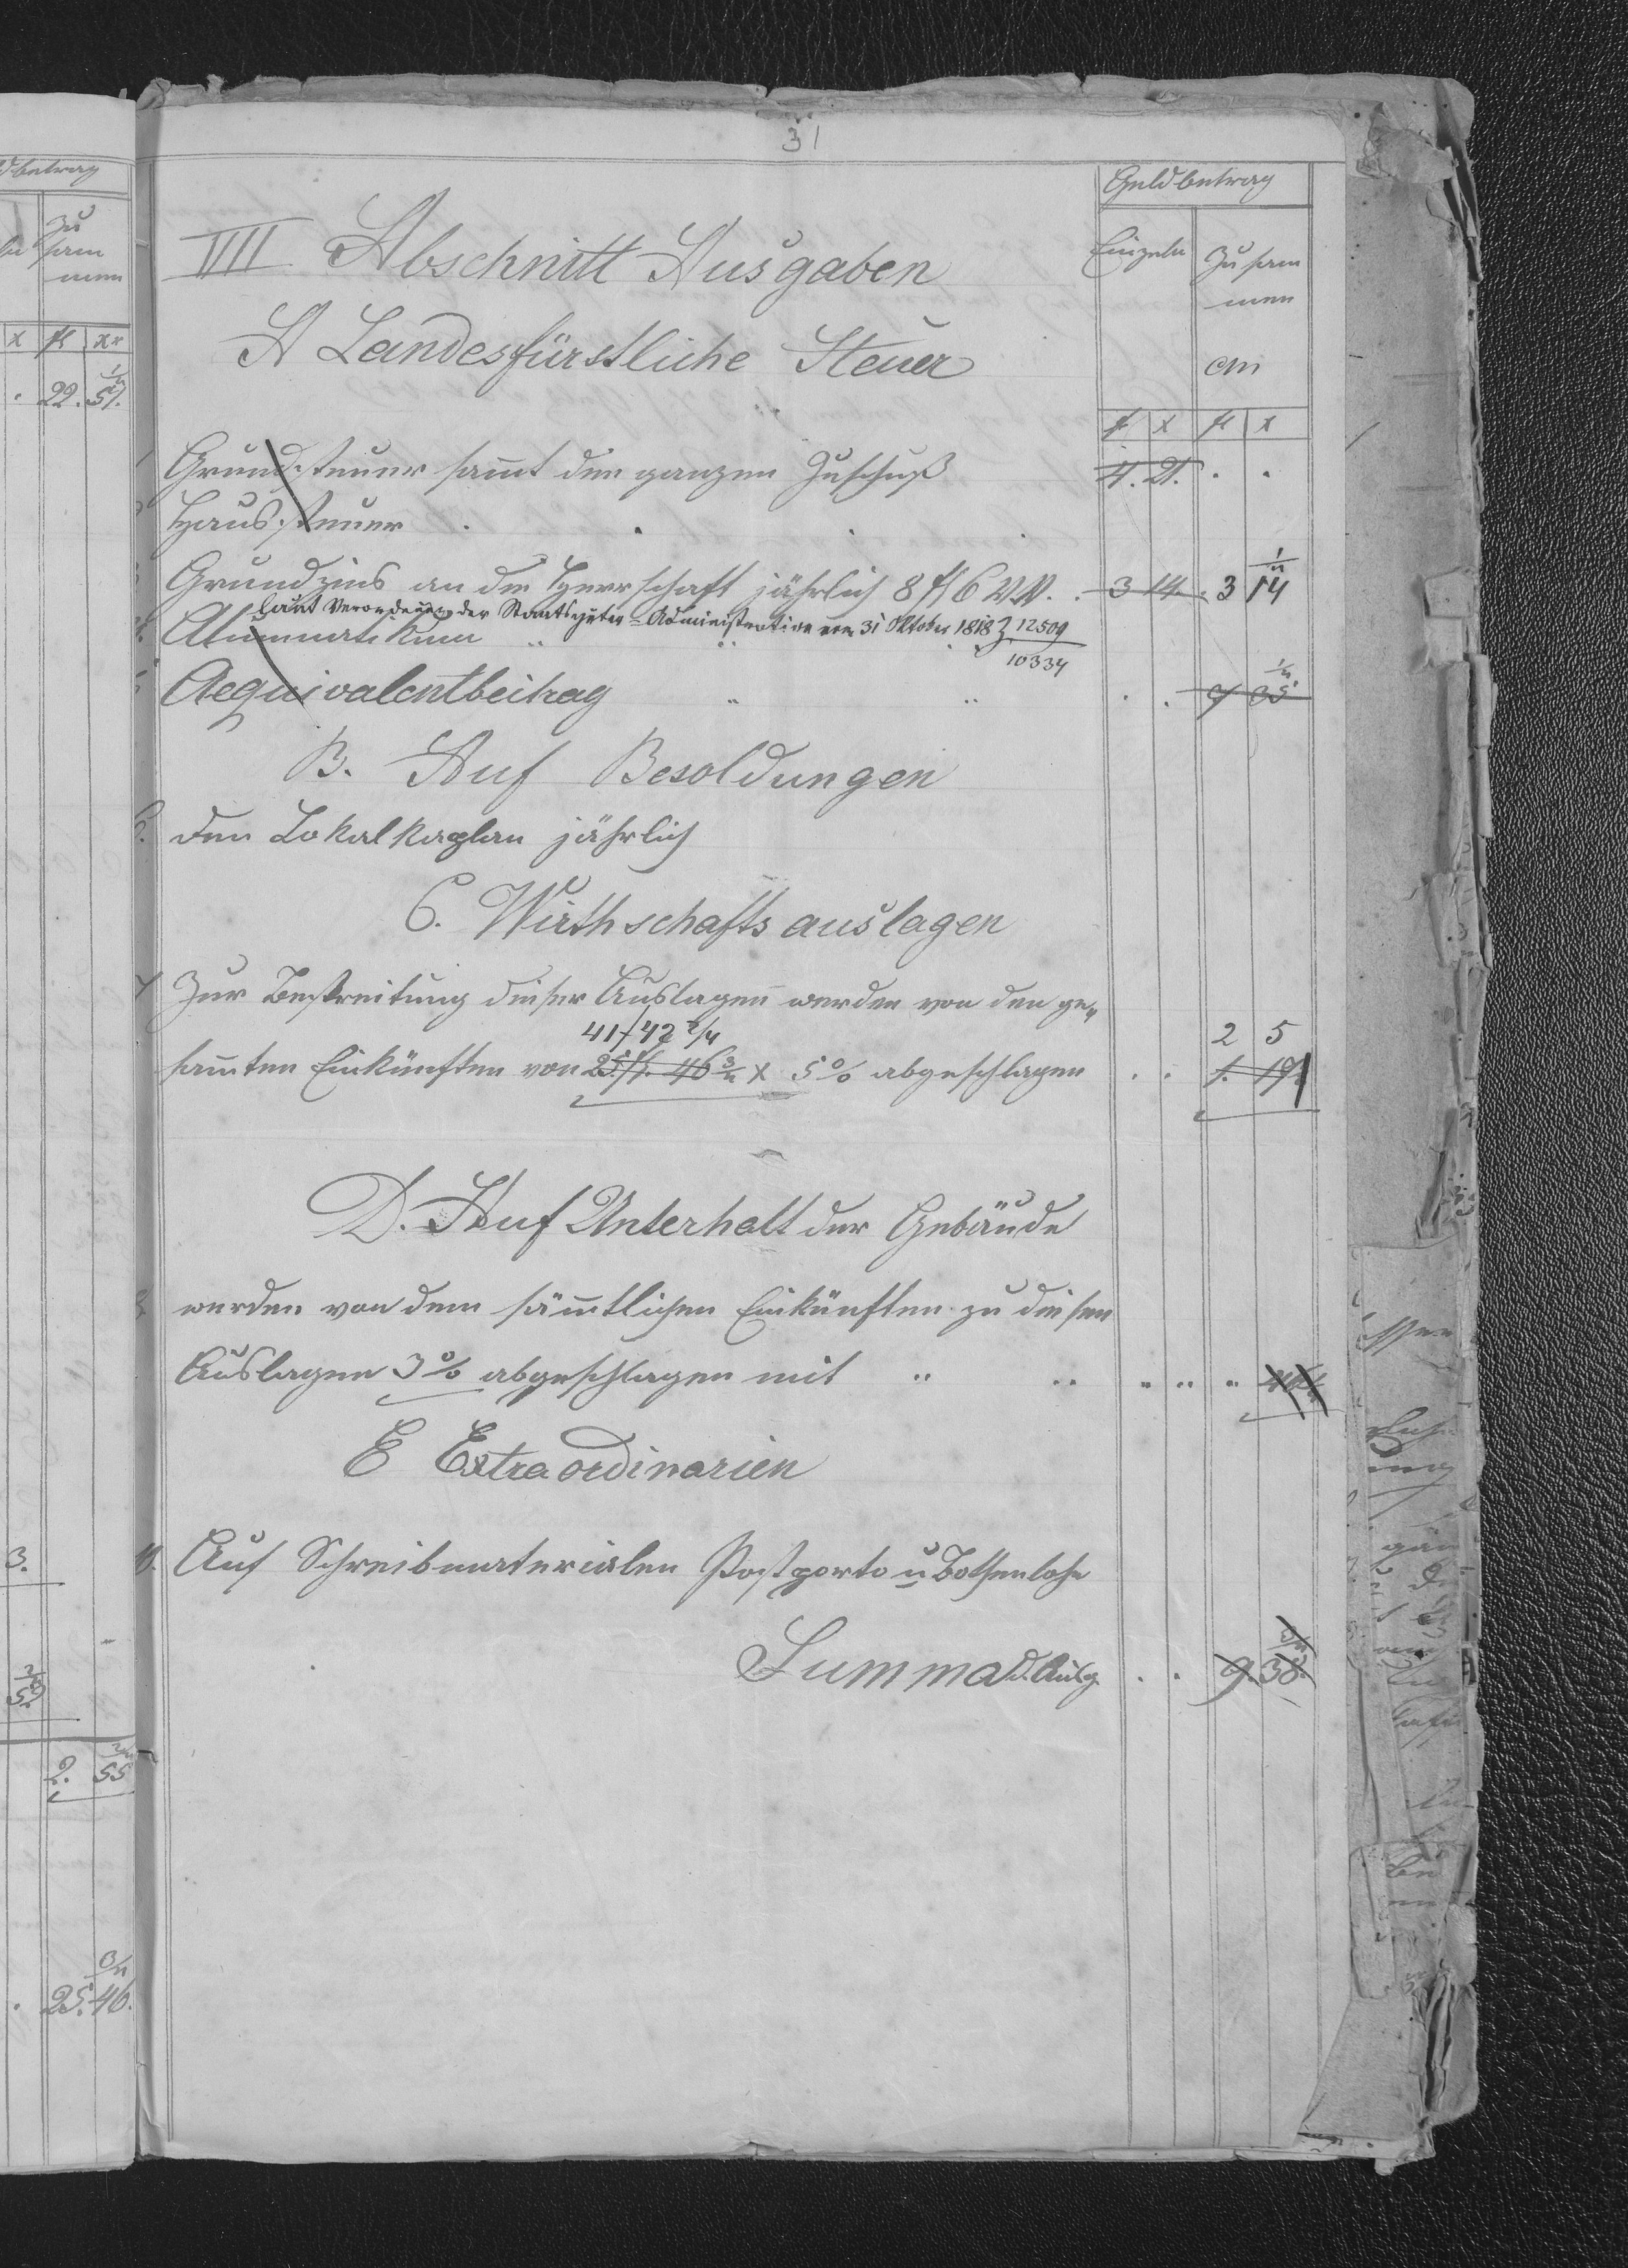 31
Geldbetrag
Einzeln Zusam
men
CM
f x fl x
VIII Abschnitt Ausgaben
A Landesfürstliche Steuer
Grundsteuer samt den ganzen Zuschuß 4. 21. . .
Haussteuer . .
Grundzins an die Herrschaft jährlich 8 f 6 W.W. . 3 14 . 3 14 1/4
laut Verordnung der Staatsgüter-Administration vom 31 Oktober 1818 Z 12509
10334
4. Alumnatikum
Aequivalentbeitrag . . 7 35 1/4
B. Auf Besoldungen
6. dem Lokalkaplan jährlich
C. Wirthschaftsauslagen
7 Zur Bestreitung dieser Auslagen werden von den ge„
41 f 42 2/4 2 5
samten Einkünften von 25 f. 46 3/4 x 5% abgeschlagen . . 1. 17
D. Auf Unterhalt der Gebäude
8 werden von dem sämtlichen Einkünften zu diesen
Auslagen 3% abgeschlagen mit
E Extraordinarien
10. Auf Schreibmaterialen Postporto u Bothenlohn
Summa d. Ausg. . . 9. 38 3/4
dbetrag
Zu
sam
men
x fl xr
. 22. 51 1/4
3.
2. 55 2/4
. 25. 46. 3/4